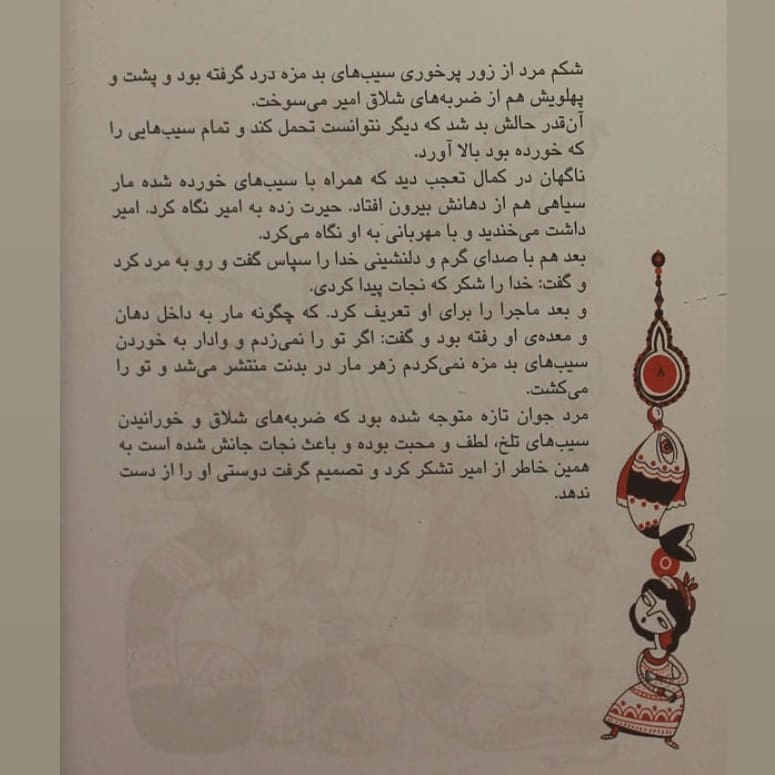 شکم مرد از زور پرخوری سیب‌های بد مزه درد گرفته بود و پشت و
پهلویش هم از ضربه‌های شلاق امیر می‌سوخت.
آن‌قدر حالش بد شد که دیگر نتوانست تحمل کند و تمام سیب‌هایی را
که خورده بود بالا آورد.
ناگهان در کمال تعجب دید که همراه با سیب‌های خورده شده مار
سیاهی هم از دهانش بیرون افتاد. حیرت زده به امیر نگاه کرد. امیر
داشت می‌خندید و با مهربانی به او نگاه می‌کرد.
بعد هم با صدای گرم و دلنشینی خدا را سپاس گفت و رو به مرد کرد
و گفت: خدا را شکر که نجات پیدا کردی.
و بعد ماجرا را برای او تعریف کرد. که چگونه مار به داخل دهان
و معده‌ی او رفته بود و گفت: اگر تو را نمی‌زدم و وادار به خوردن
سیب‌های بد مزه نمی‌کردم زهر مار در بدنت منتشر می‌شد و تو را
می‌کشت.
مرد جوان تازه متوجه شده بود که ضربه‌های شلاق و خورانیدن
سیب‌های تلخ، لطف و محبت بوده و باعث نجات جانش شده است به
همین خاطر از امیر تشکر کرد و تصمیم گرفت دوستی او را از دست
ندهد.
۸